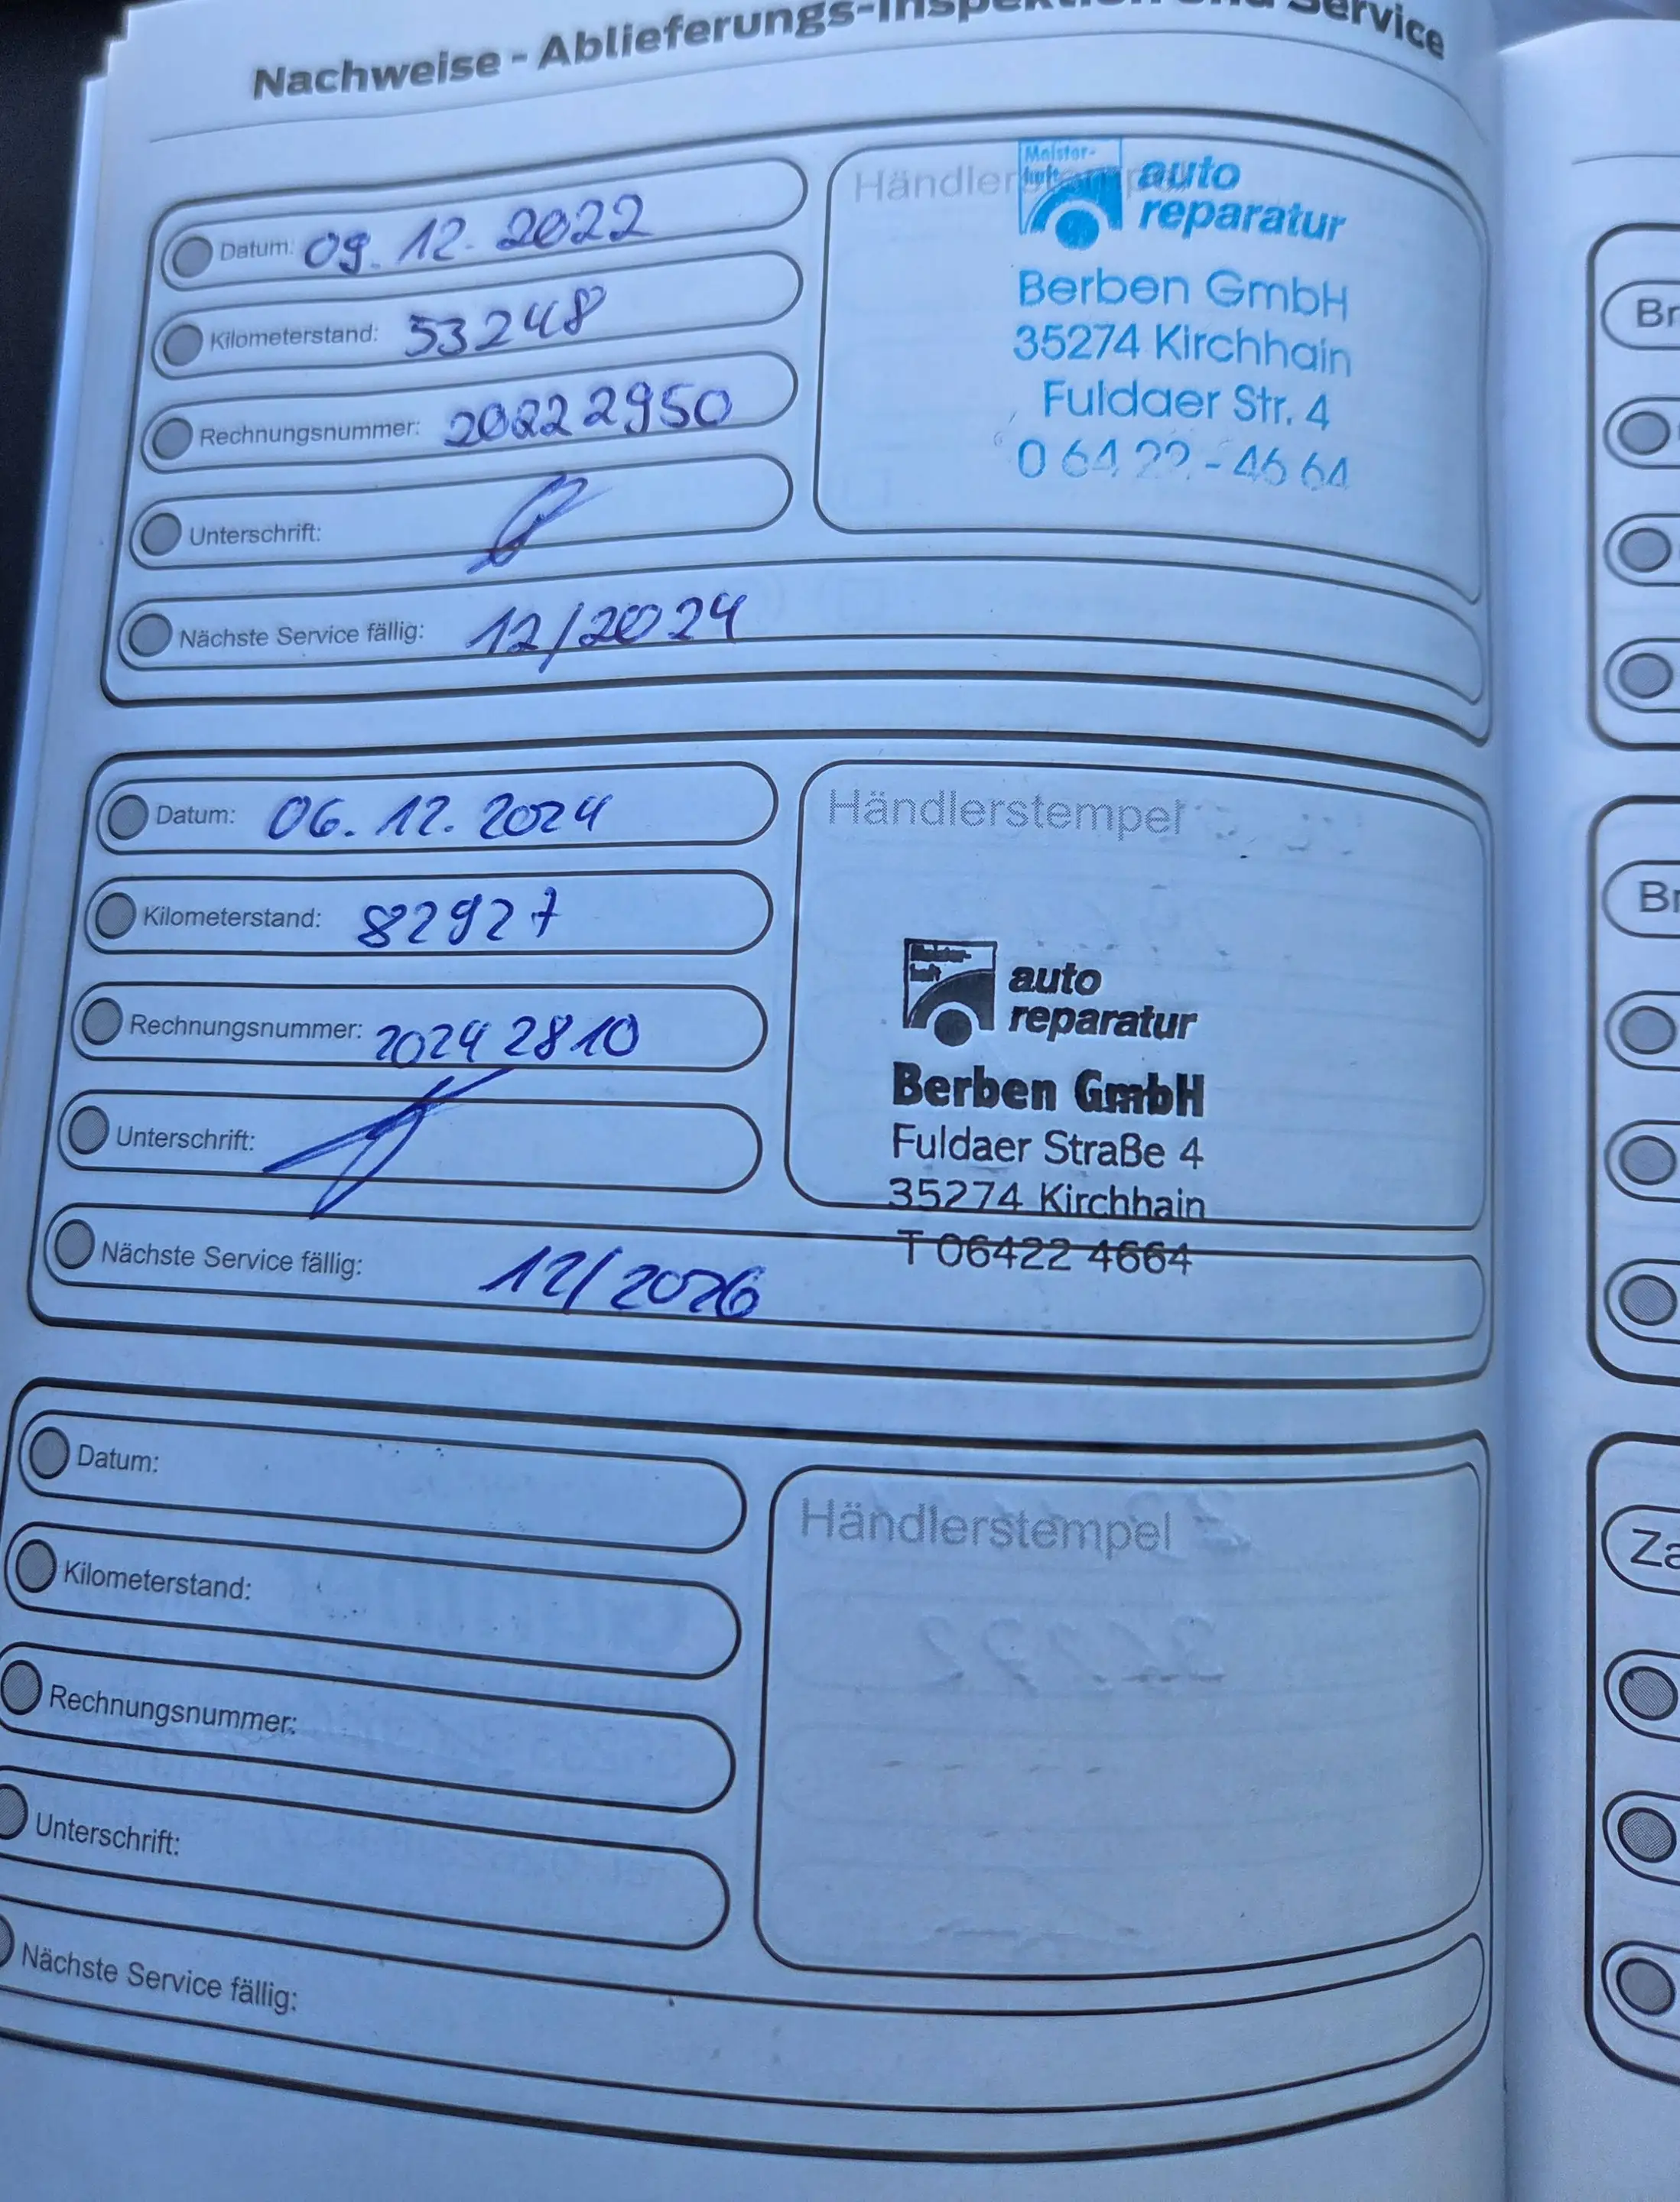 Nachweise - Ablieferungs-Inspektion und Service
Datum: 09.12.2022
Kilometerstand: 53248
Rechnungsnummer: 20222950
Unterschrift:
Nächste Service fällig: 12/2024
Händlerstempel
Meister-
haft
auto
reparatur
Berben GmbH
35274 Kirchhain
Fuldaer Str. 4
0 64 22 - 46 64
Datum: 06.12.2024
Kilometerstand: 82927
Rechnungsnummer: 2024 2810
Unterschrift:
Nächste Service fällig: 12/2026
Händlerstempel
Meister-
haft
auto
reparatur
Berben GmbH
Fuldaer Straße 4
35274 Kirchhain
T 06422 4664
Datum:
Kilometerstand:
Rechnungsnummer:
Unterschrift:
Nächste Service fällig:
Händlerstempel
Br
Br
Za